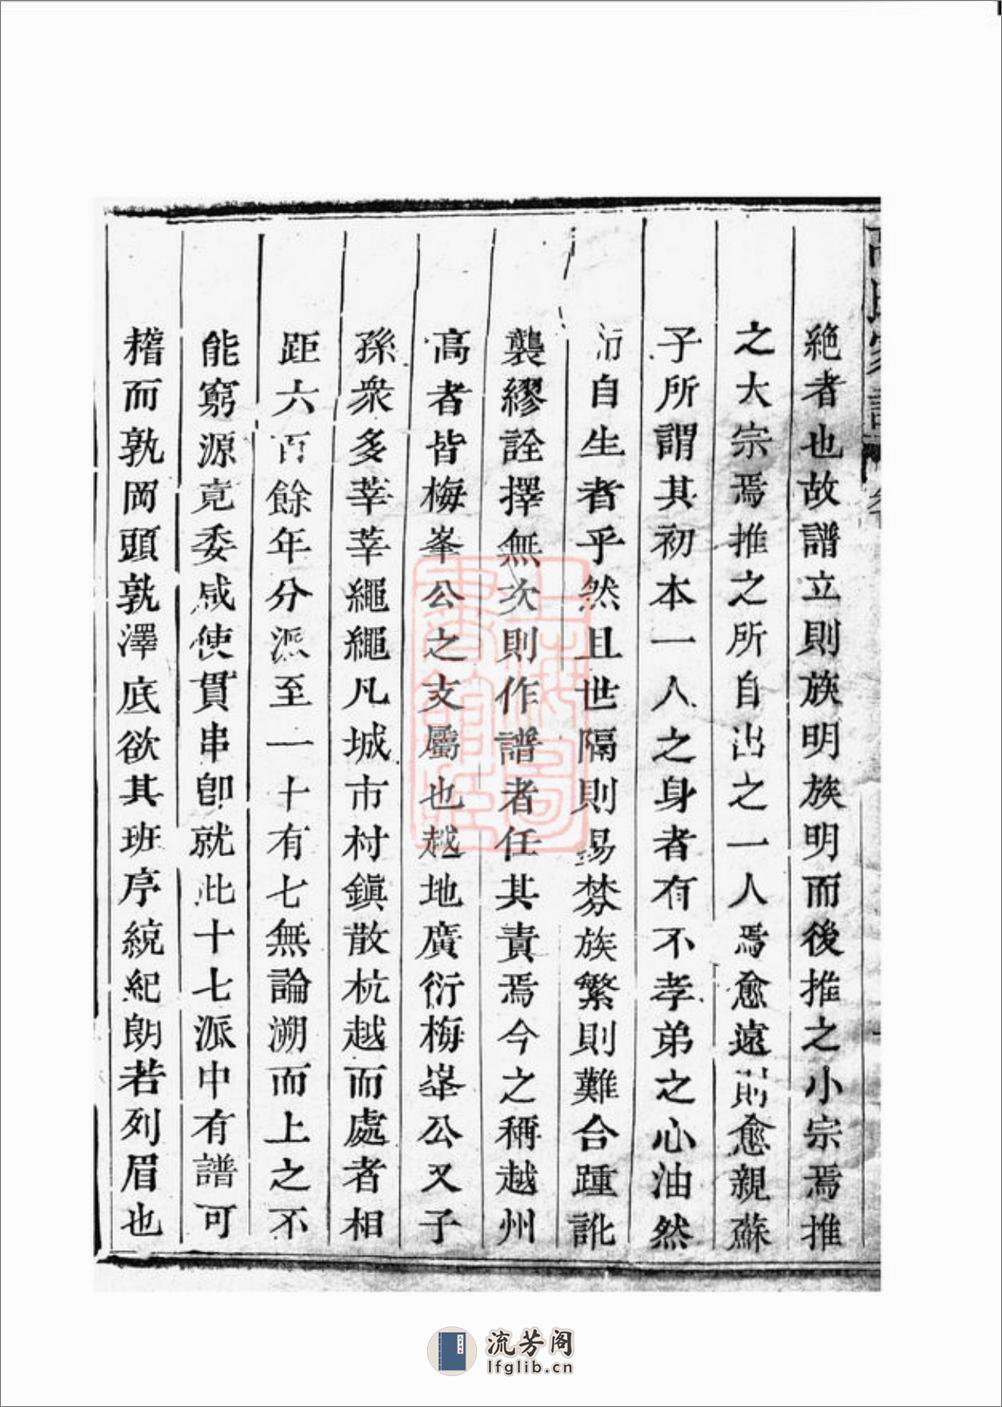 絶者也故譜立則族明族明而後推之小宗焉推
之大宗焉推之所自出之一人焉愈遠而愈親蘇
子所謂其初本一人之身者有不孝弟之心油然
而自生者乎然且世隔則易棼族繁則難合踵訛
襲繆詮擇無次則作譜者任其責焉今之稱越州
高者皆梅峯公之支屬也越地廣衍梅峯公又子
孫衆多莘莘繩繩凡城市村鎮散杭越而處者相
距六百餘年分派至一十有七無論溯而上之不
能窮源竟委咸使貫串卽就此十七派中有譜可
稽而孰岡頭孰澤底欲其班序統紀朗若列眉也
流芳阁
lfglib.cn